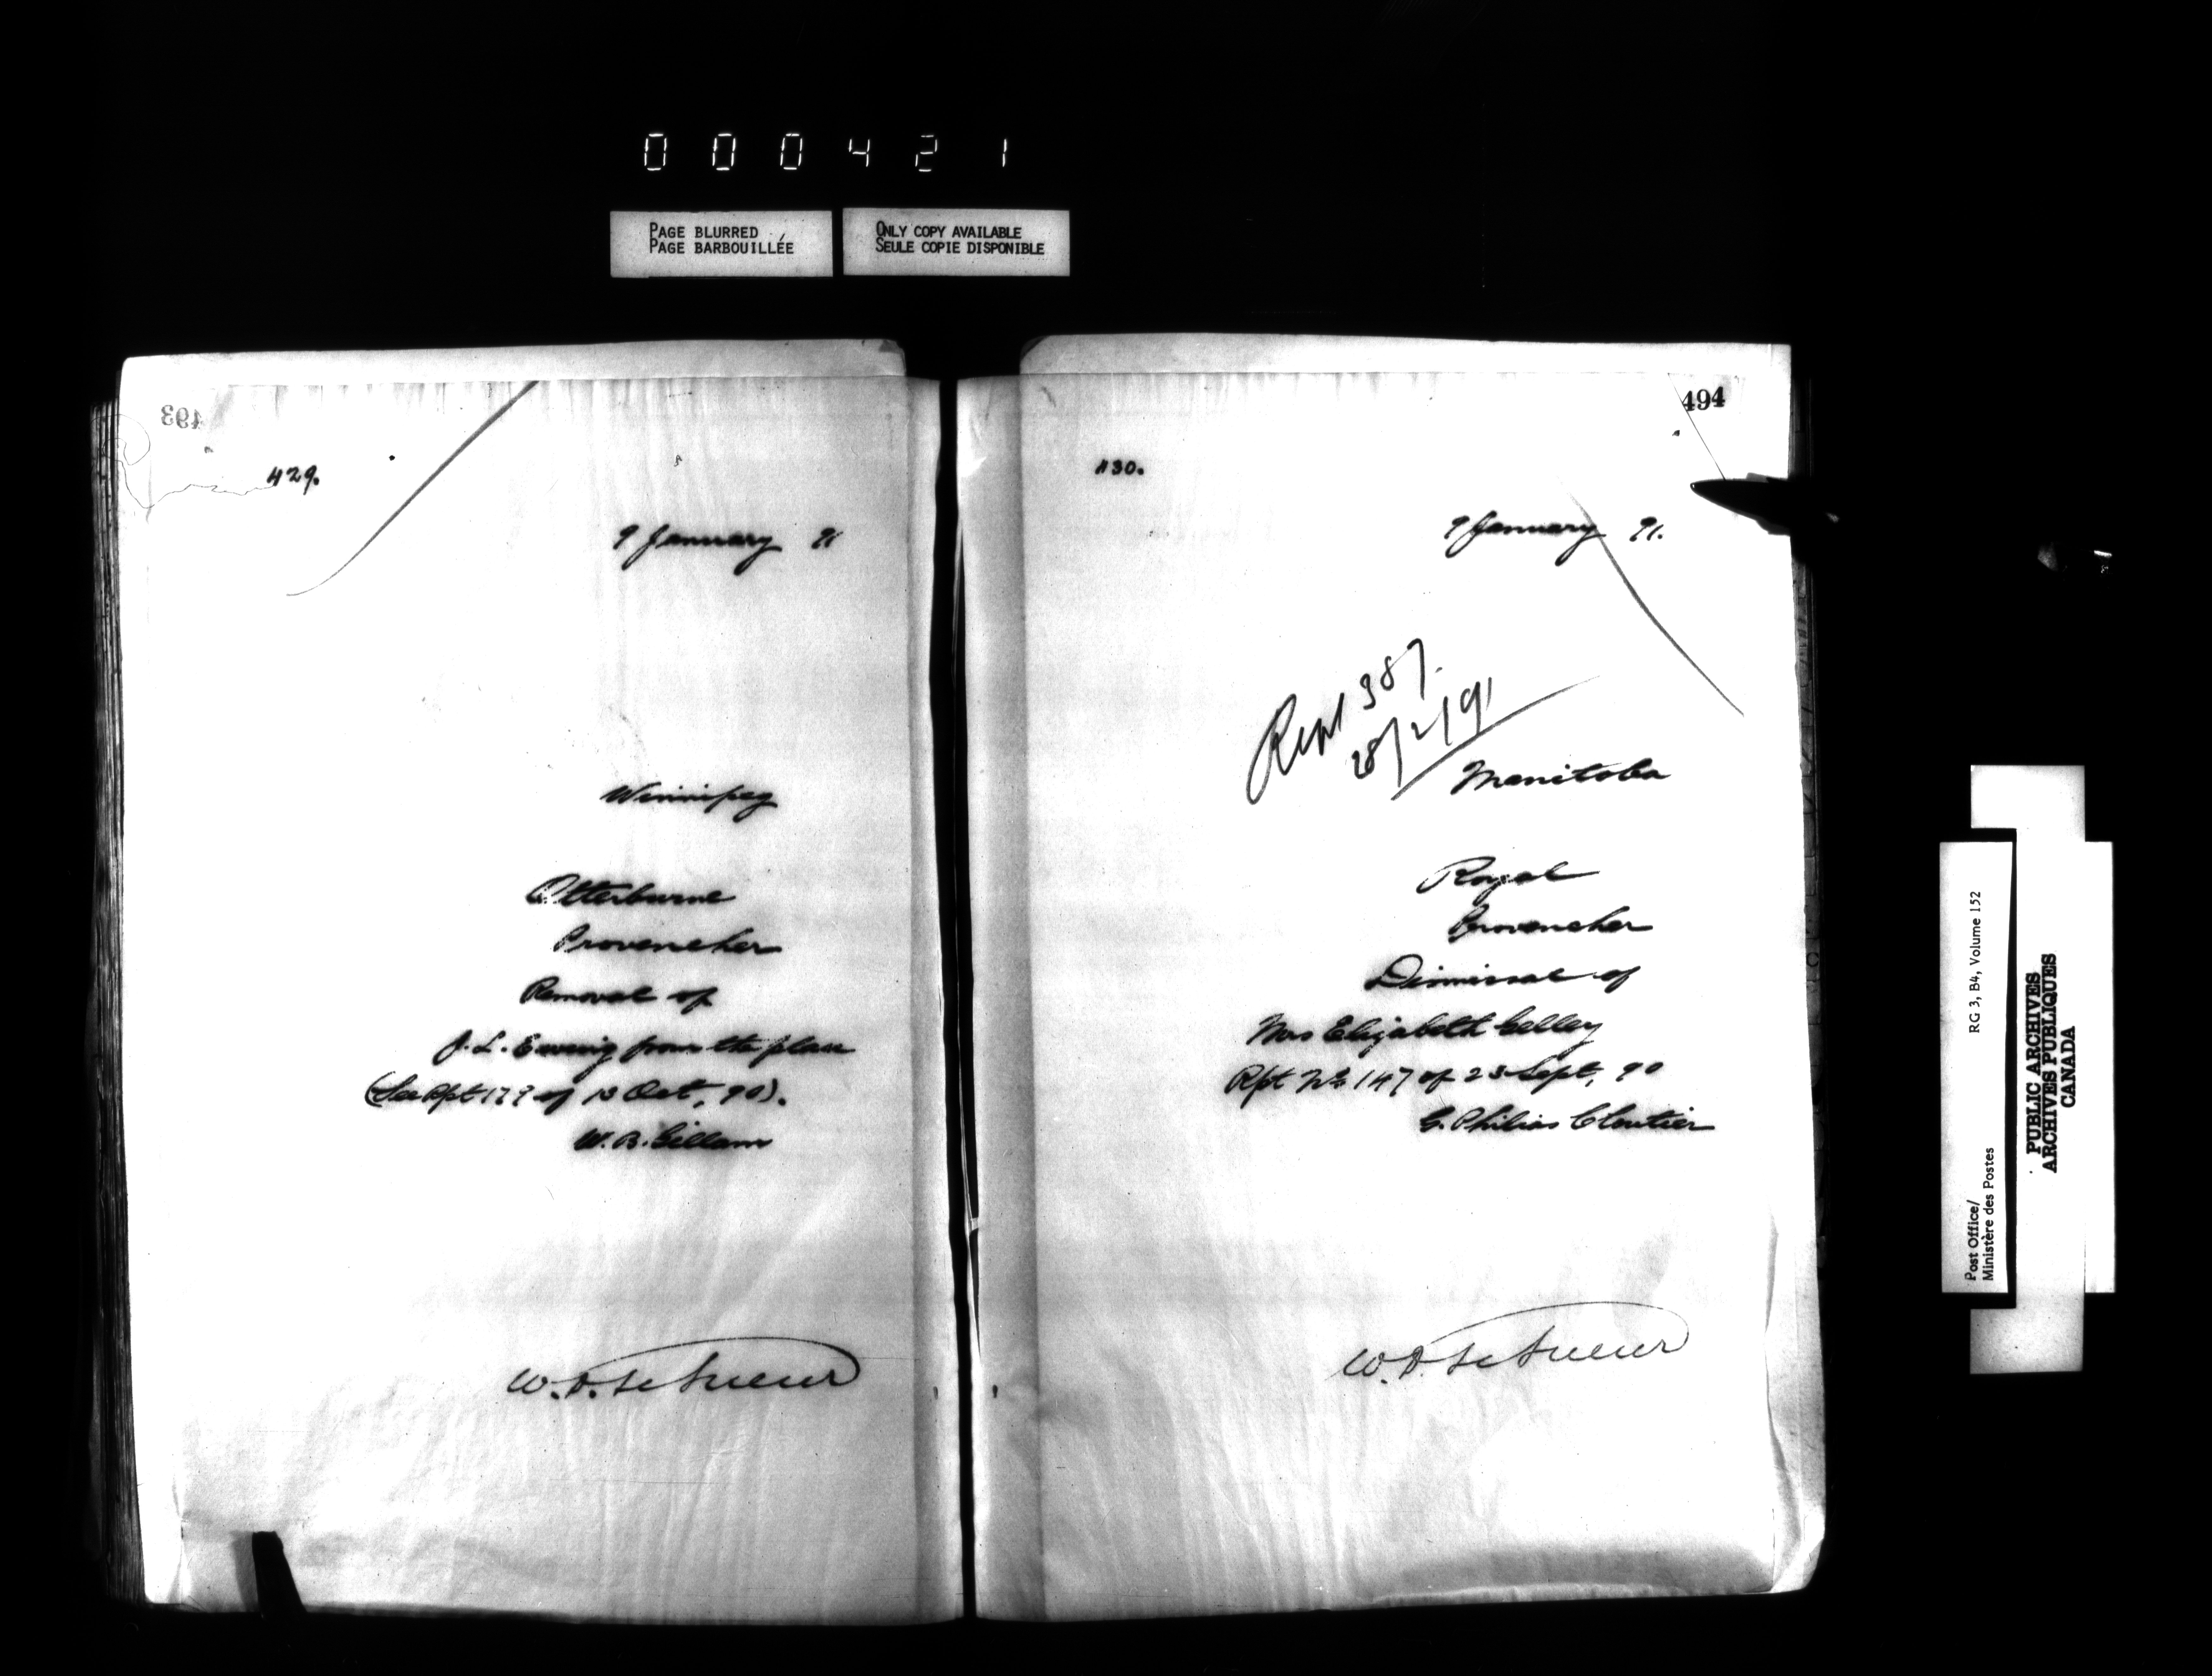 000421
PAGE BLURRED
PAGE BARBOUILLÉE
ONLY COPY AVAILABLE
SEULE COPIE DISPONIBLE
493
429.
9 January 91
Winnipeg
Otterburne
Provencher
Removal of
J. L. Ewing from the place
(See Rpt 179 of 13 Oct, 90).
W. B. Gillam
W. D. LeSueur
494
430.
9 January 91.
Rept 387.
28/2/91
Manitoba
Royal
Provencher
Dismissal of
Mrs Elizabeth Gelley
Rpt No 147 of 23 Sept, 90
G. Philias Cloutier
W. D. LeSueur
RG 3, B4, Volume 152
Post Office/
Ministère des Postes
PUBLIC ARCHIVES
ARCHIVES PUBLIQUES
CANADA